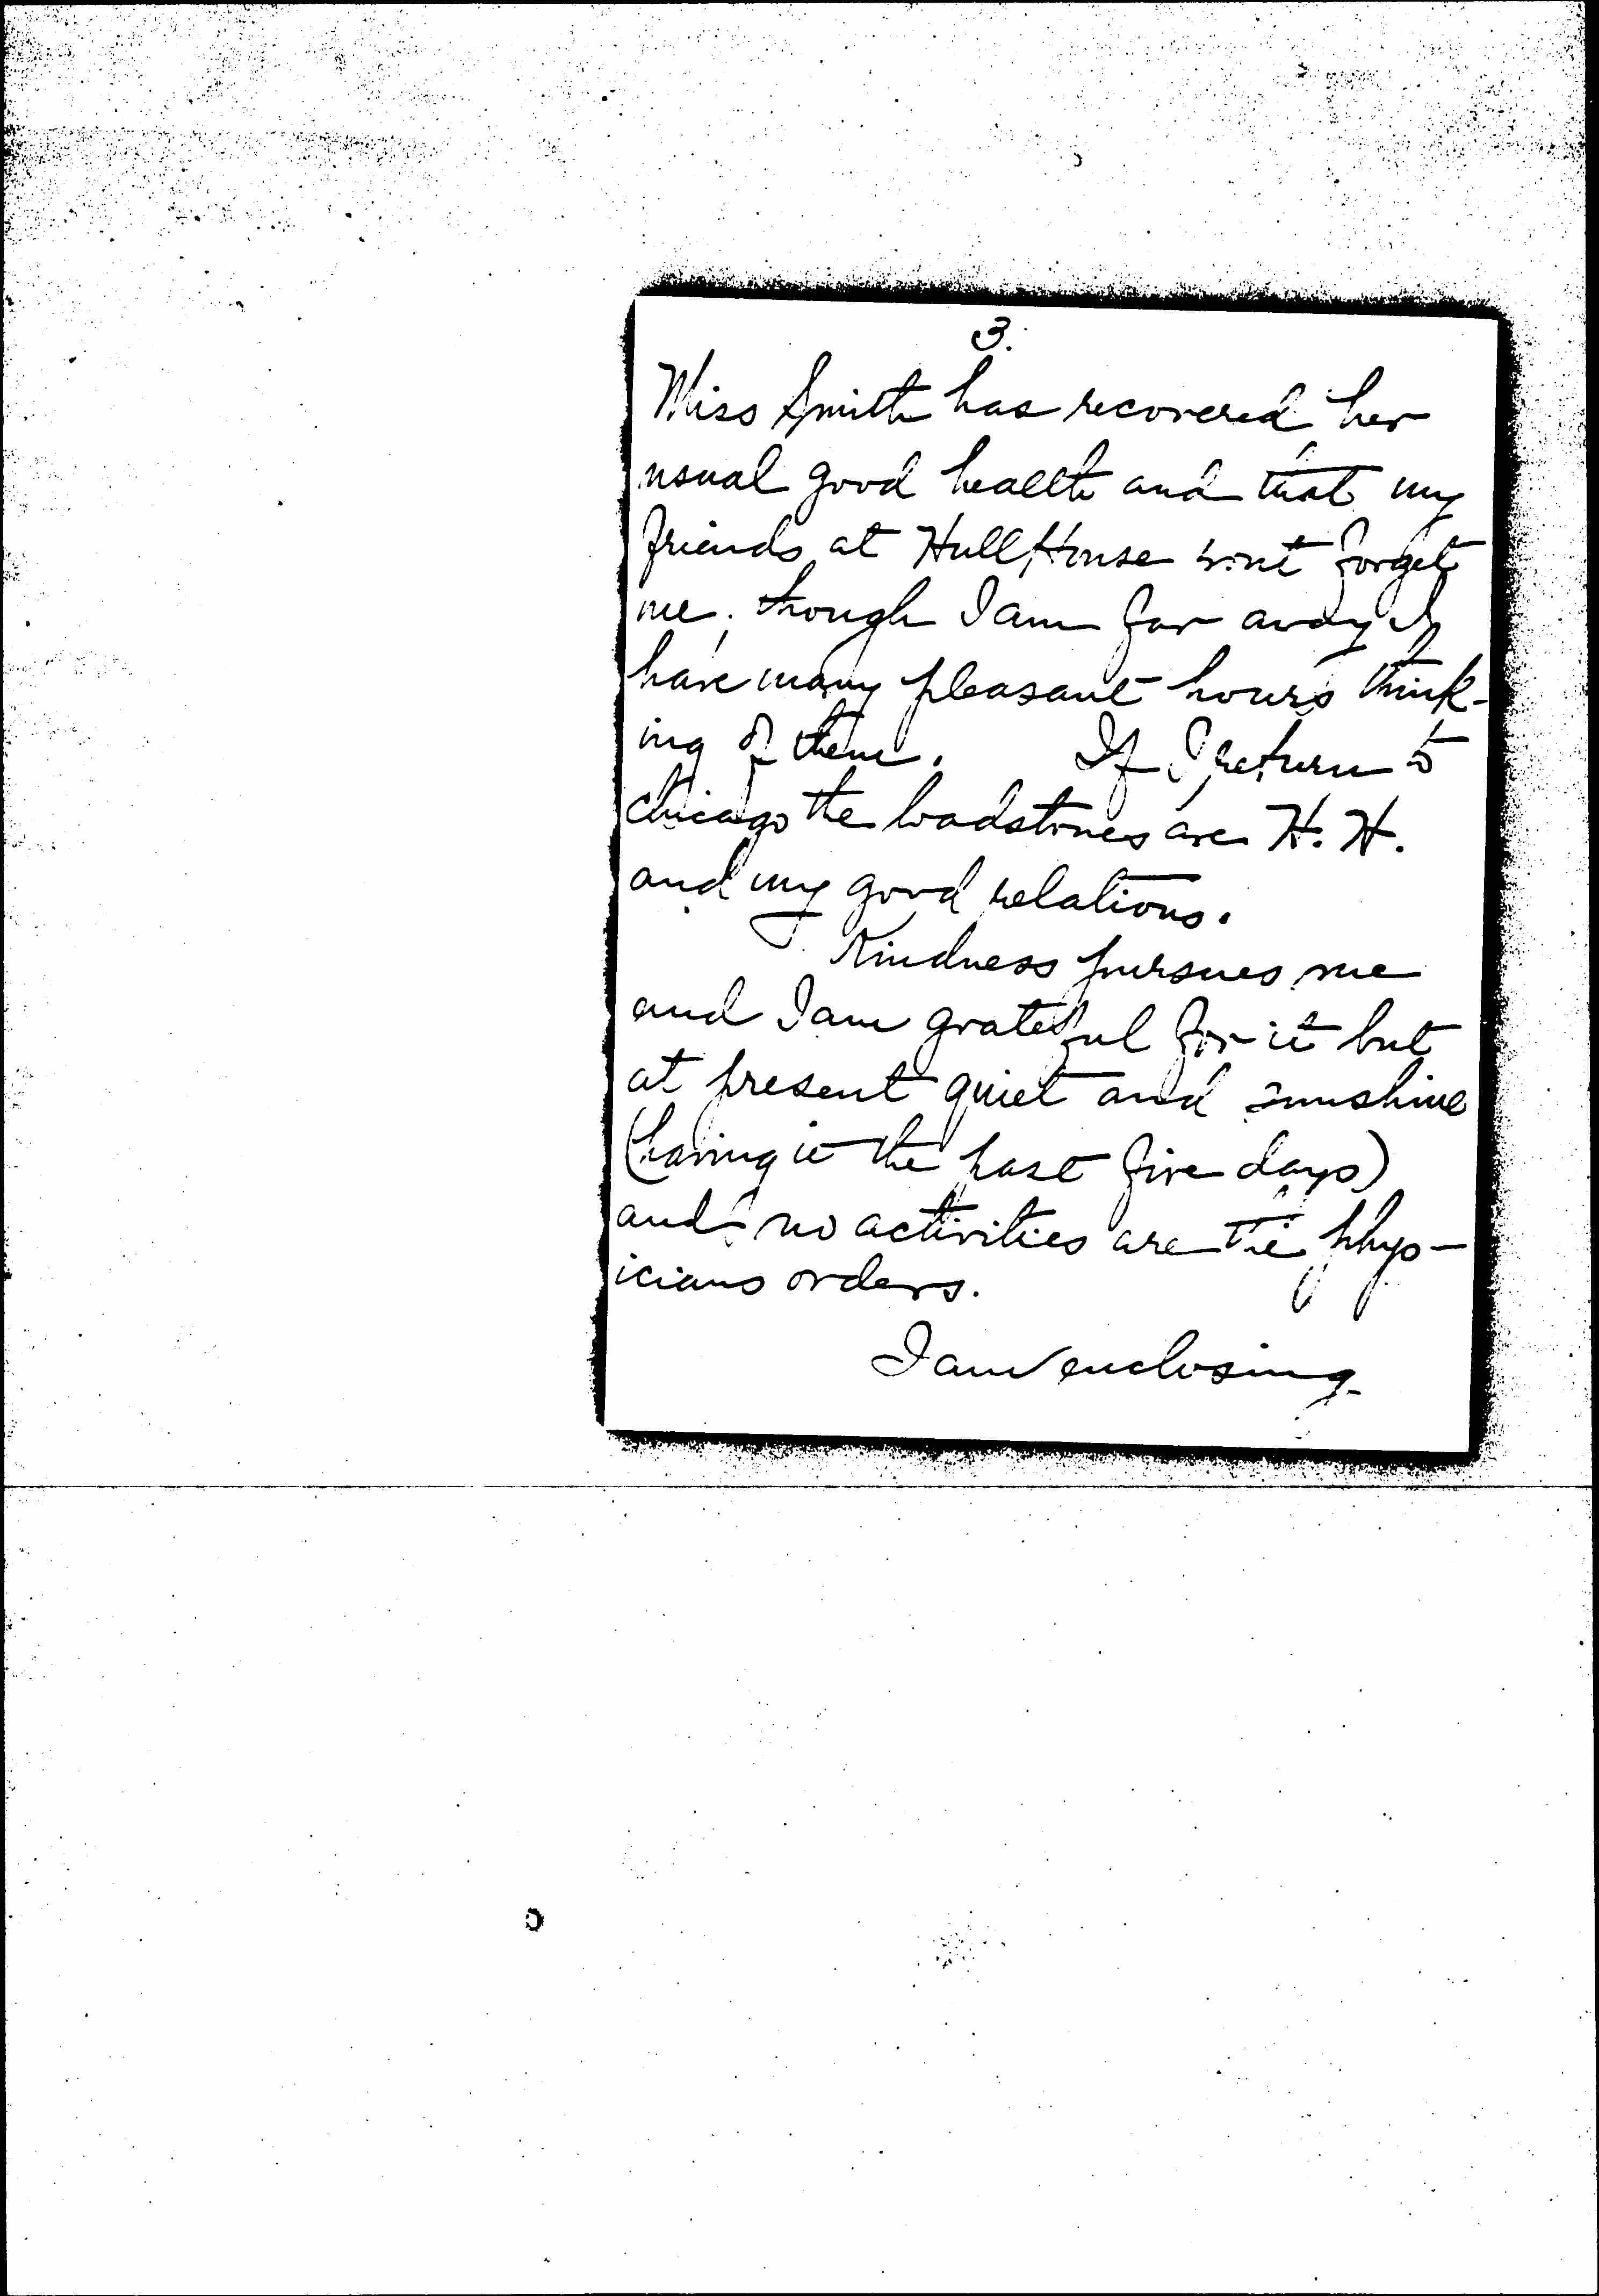 3.
Miss Smith has recovered her
usual good health and that my
friends at Hull House wont forget
me; though I am far away I
have many pleasant hours think-
ing of them. If I return to
Chicago the loadstones are H. H.
and my good relations.
Kindness pursues me
and I am grateful for it but
at present quiet and sunshine
(having it the past five days)
and no activities are the phys-
icians orders.
I am enclosing